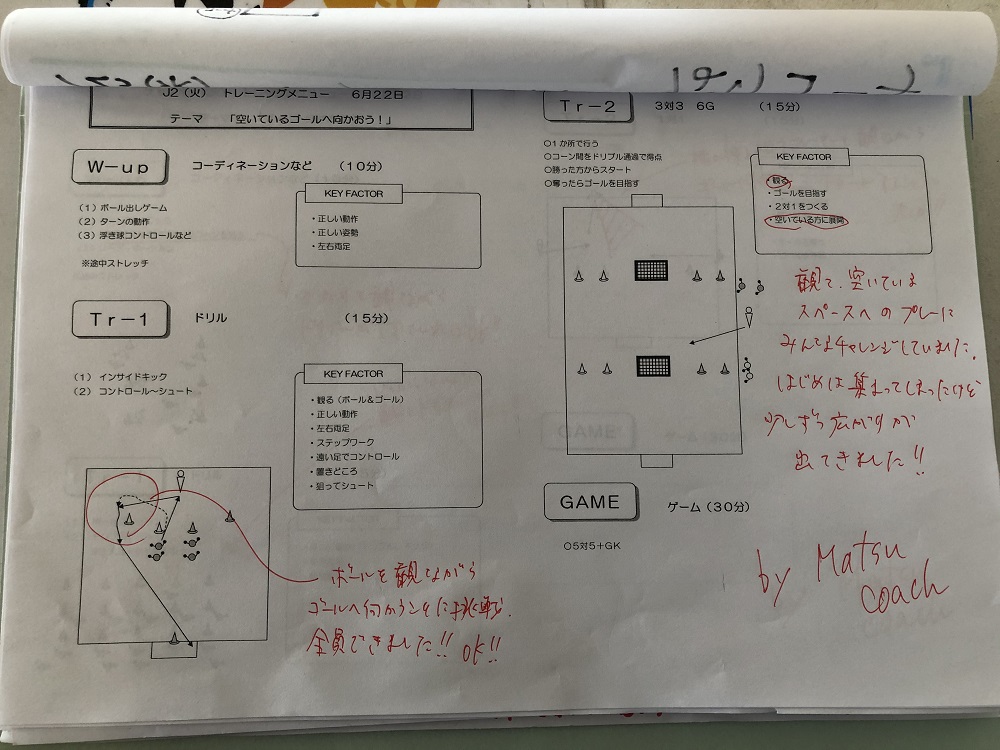 J2（火）　トレーニングメニュー　6月22日
テーマ　「空いているゴールへ向かおう！」
W－up　コーディネーションなど　（10分）
（1）ボール出しゲーム
（2）ターンの動作
（3）浮き球コントロールなど
※途中ストレッチ
KEY FACTOR
・正しい動作
・正しい姿勢
・左右両足
Tr－1　ドリル　（15分）
（1）インサイドキック
（2）コントロール～シュート
KEY FACTOR
・観る（ボール＆ゴール）
・正しい動作
・左右両足
・ステップワーク
・遠い足でコントロール
・置きどころ
・狙ってシュート
ボールを観ながら
ゴールへ向かうことに挑戦。
全員できました!! OK!!
Tr－2　3対3　6G　（15分）
○1か所で行う
○コーン間をドリブル通過で得点
○勝った方からスタート
○奪ったらゴールを目指す
KEY FACTOR
・観る
・ゴールを目指す
・2対1をつくる
・空いている方に展開
観て、空いている
スペースへのプレーに
みんなチャレンジしていました。
はじめは集まってしまったけど
少しずつ広がりが
出てきました!!
GAME　ゲーム（30分）
○5対5＋GK
by Matsu
coach